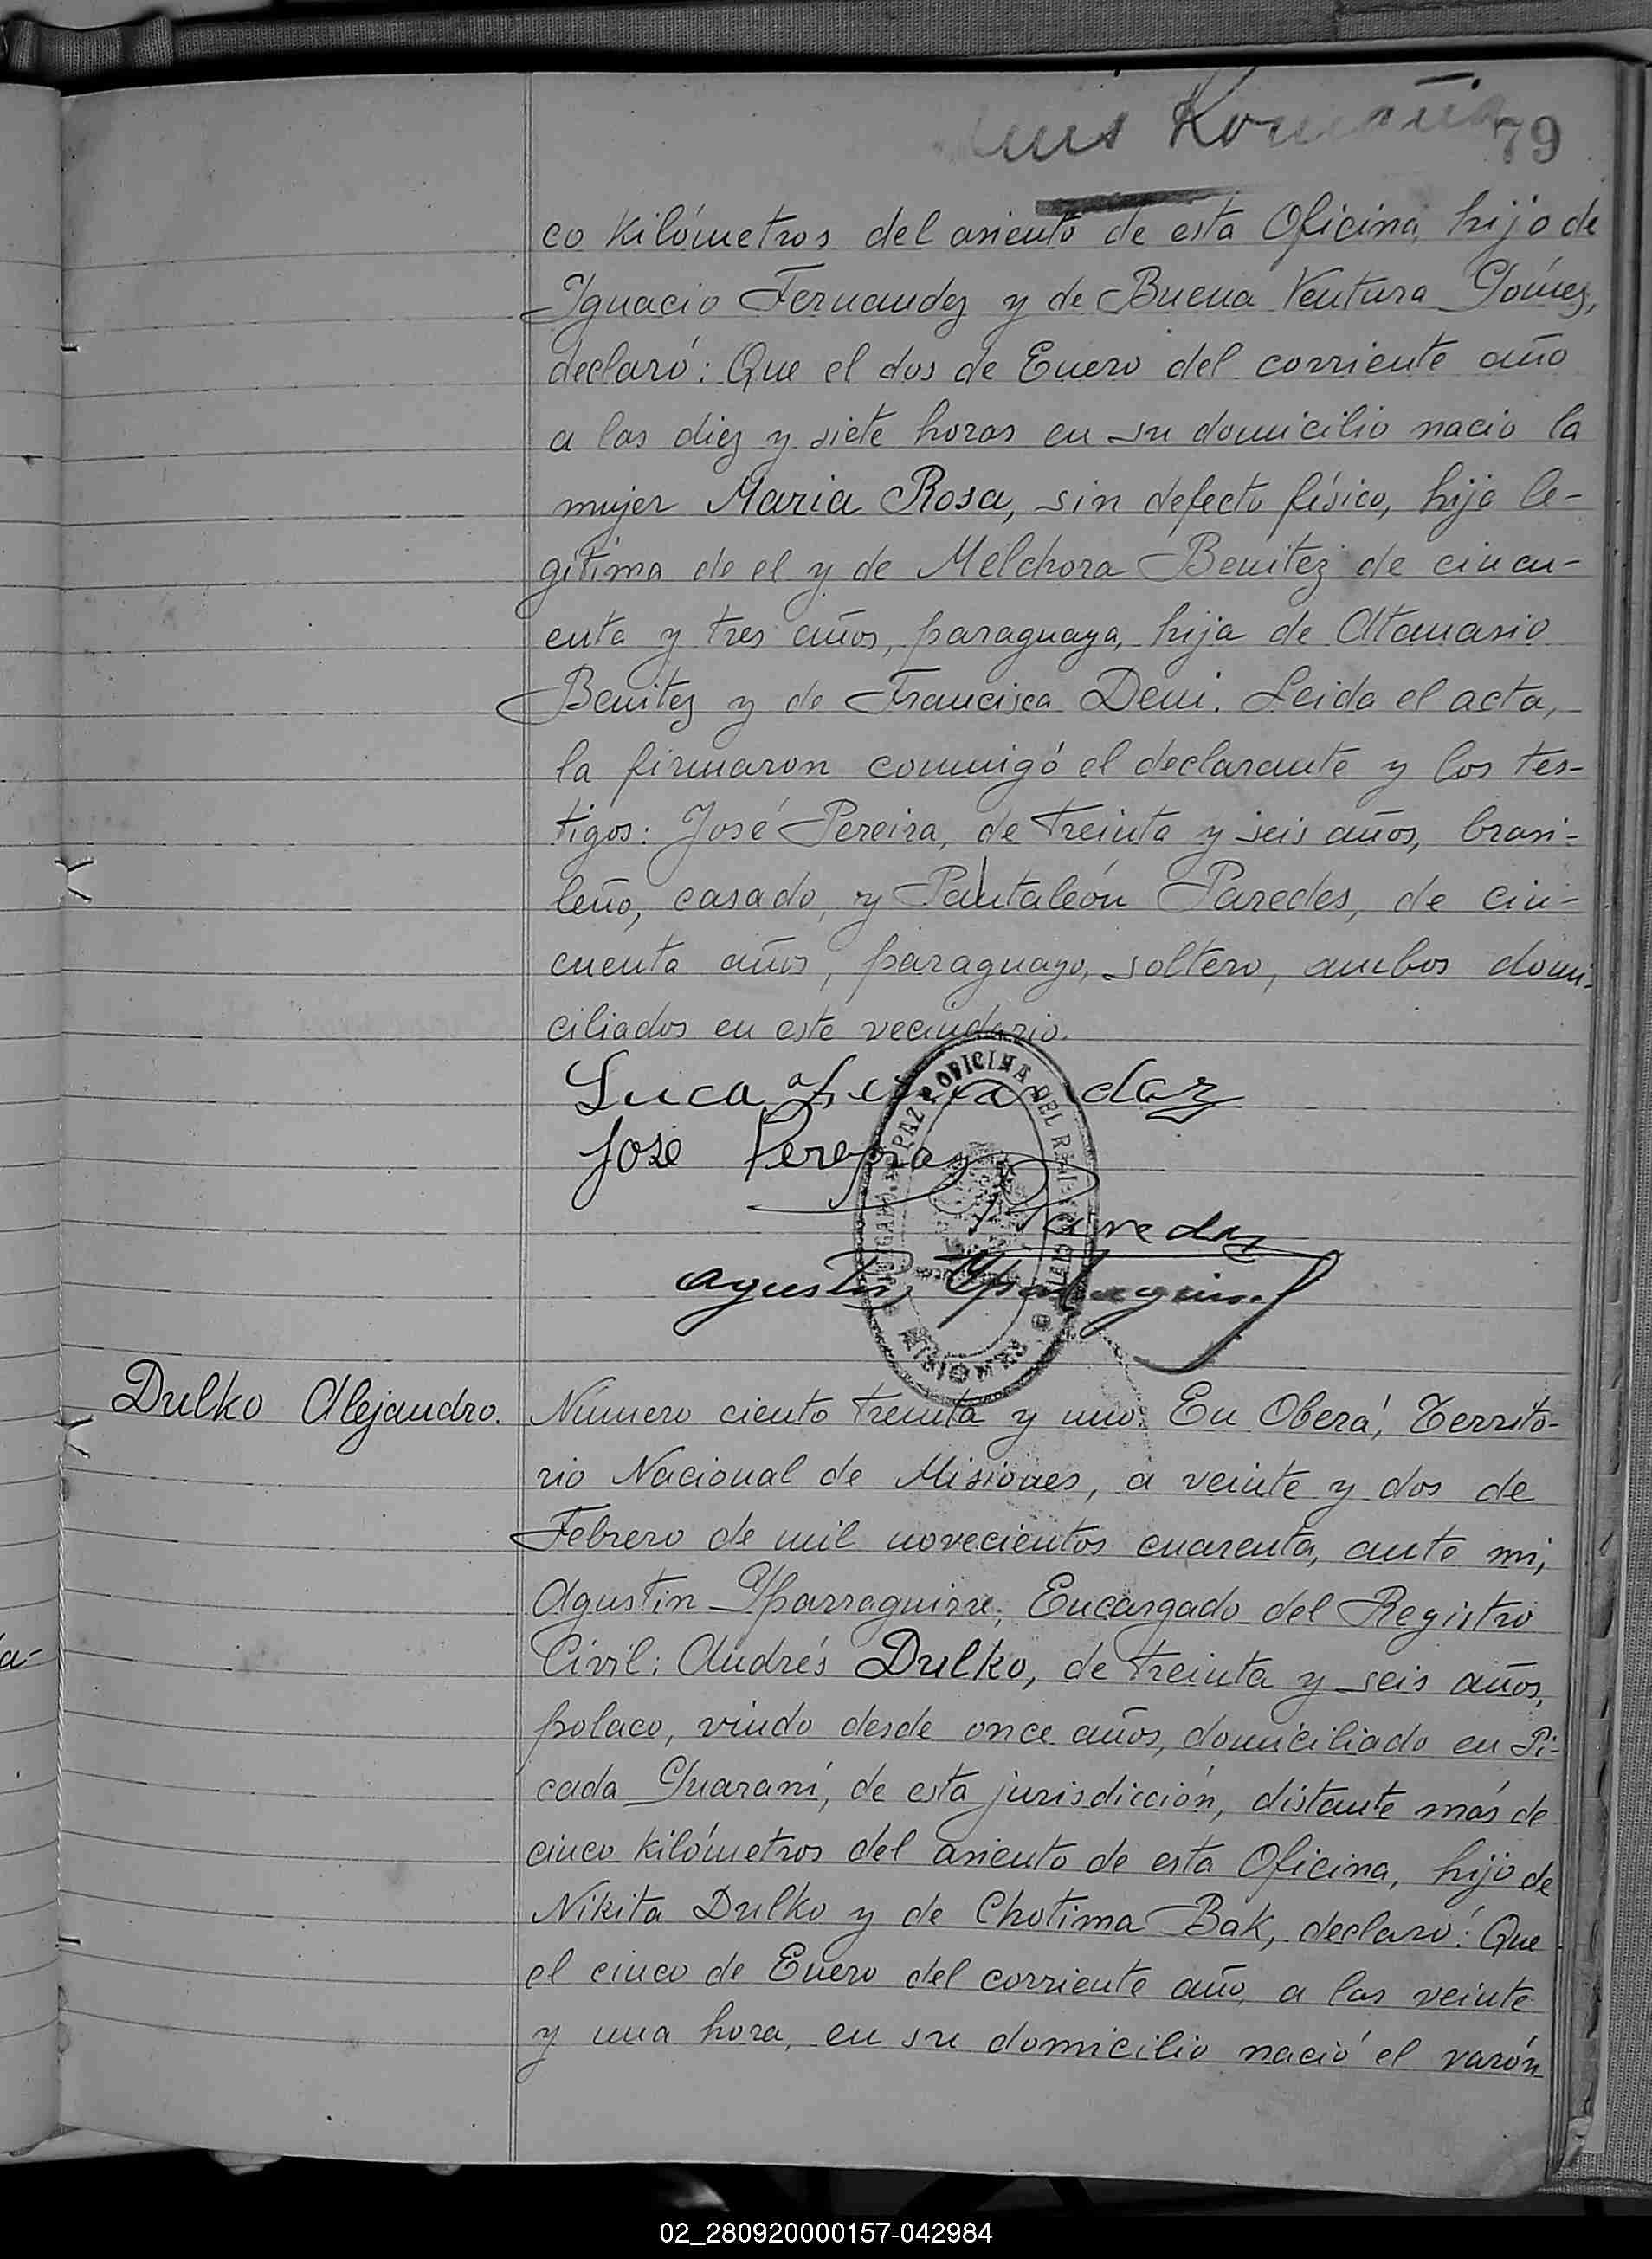 79
co Kilómetros del asiento de esta Oficina, hijo de
Ignacio Fernandez y de Buena Ventura Gómez,
declaró: Que el dos de Enero del corriente año
a las diez y siete horas en su domicilio nacio la
mujer Maria Rosa, sin defecto físico, hija le-
gitima de el y de Melchora Benitez de cincu-
enta y tres años, paraguaya, hija de Atanasio
Benitez y de Francisca Deni. Leida el acta,
la firmaron conmigó el declarante y los tes-
tigos: José Pereira, de treinta y seis años, brasi-
leño, casado, y Pantaleón Paredes, de cin-
cuenta años, paraguayo, soltero, ambos domi-
ciliados en este vecindario.
José Pereira
Paredes
Agustin
PAZ OFICINA DEL
MISIONES
Dulko Alejandro.
Número ciento treinta y uno: En Oberá, Territo-
rio Nacional de Misiones, a veinte y dos de
Febrero de mil novecientos cuarenta, ante mi,
Agustin Yparraguirre, Encargado del Registro
Civil: Andrés Dulko, de treinta y seis años,
polaco, viudo desde once años, domiciliado en Pi-
cada Guaraní, de esta jurisdicción, distante más de
cinco kilómetros del asiento de esta Oficina, hijo de
Nikita Dulko y de Chotima Bak, declaró: Que
el cinco de Enero del corriente año, a las veinte
y una hora, en su domicilio nació el varón
02_280920000157-042984